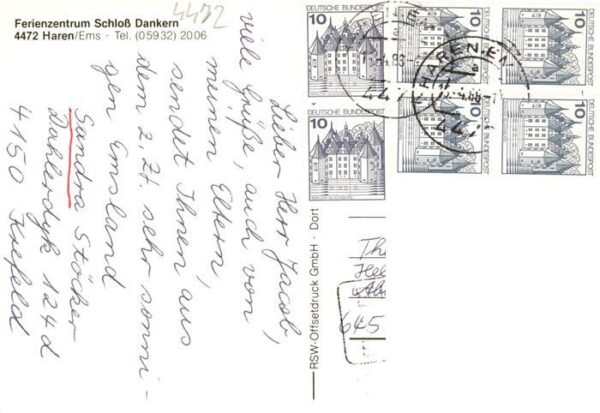 Ferienzentrum Schloß Dankern
4472 Haren/Ems · Tel. (05932) 2006
4472
Lieber Herr Jacob,
viele Grüße, auch von
meinen Eltern,
sendet Ihnen aus
dem z. Zt. sehr sonni-
gen Emsland
Sandra Stöcker
Dahlerdyk 124d
4150 Krefeld
RSW-Offsetdruck GmbH · Dort
10
DEUTSCHE BUNDESPOST
10
DEUTSCHE BUNDESPOST
10
DEUTSCHE BUNDESPOST
10
DEUTSCHE BUNDESPOST
10
DEUTSCHE BUNDESPOST
10
DEUTSCHE BUNDESPOST
HAREN, EM
447
645